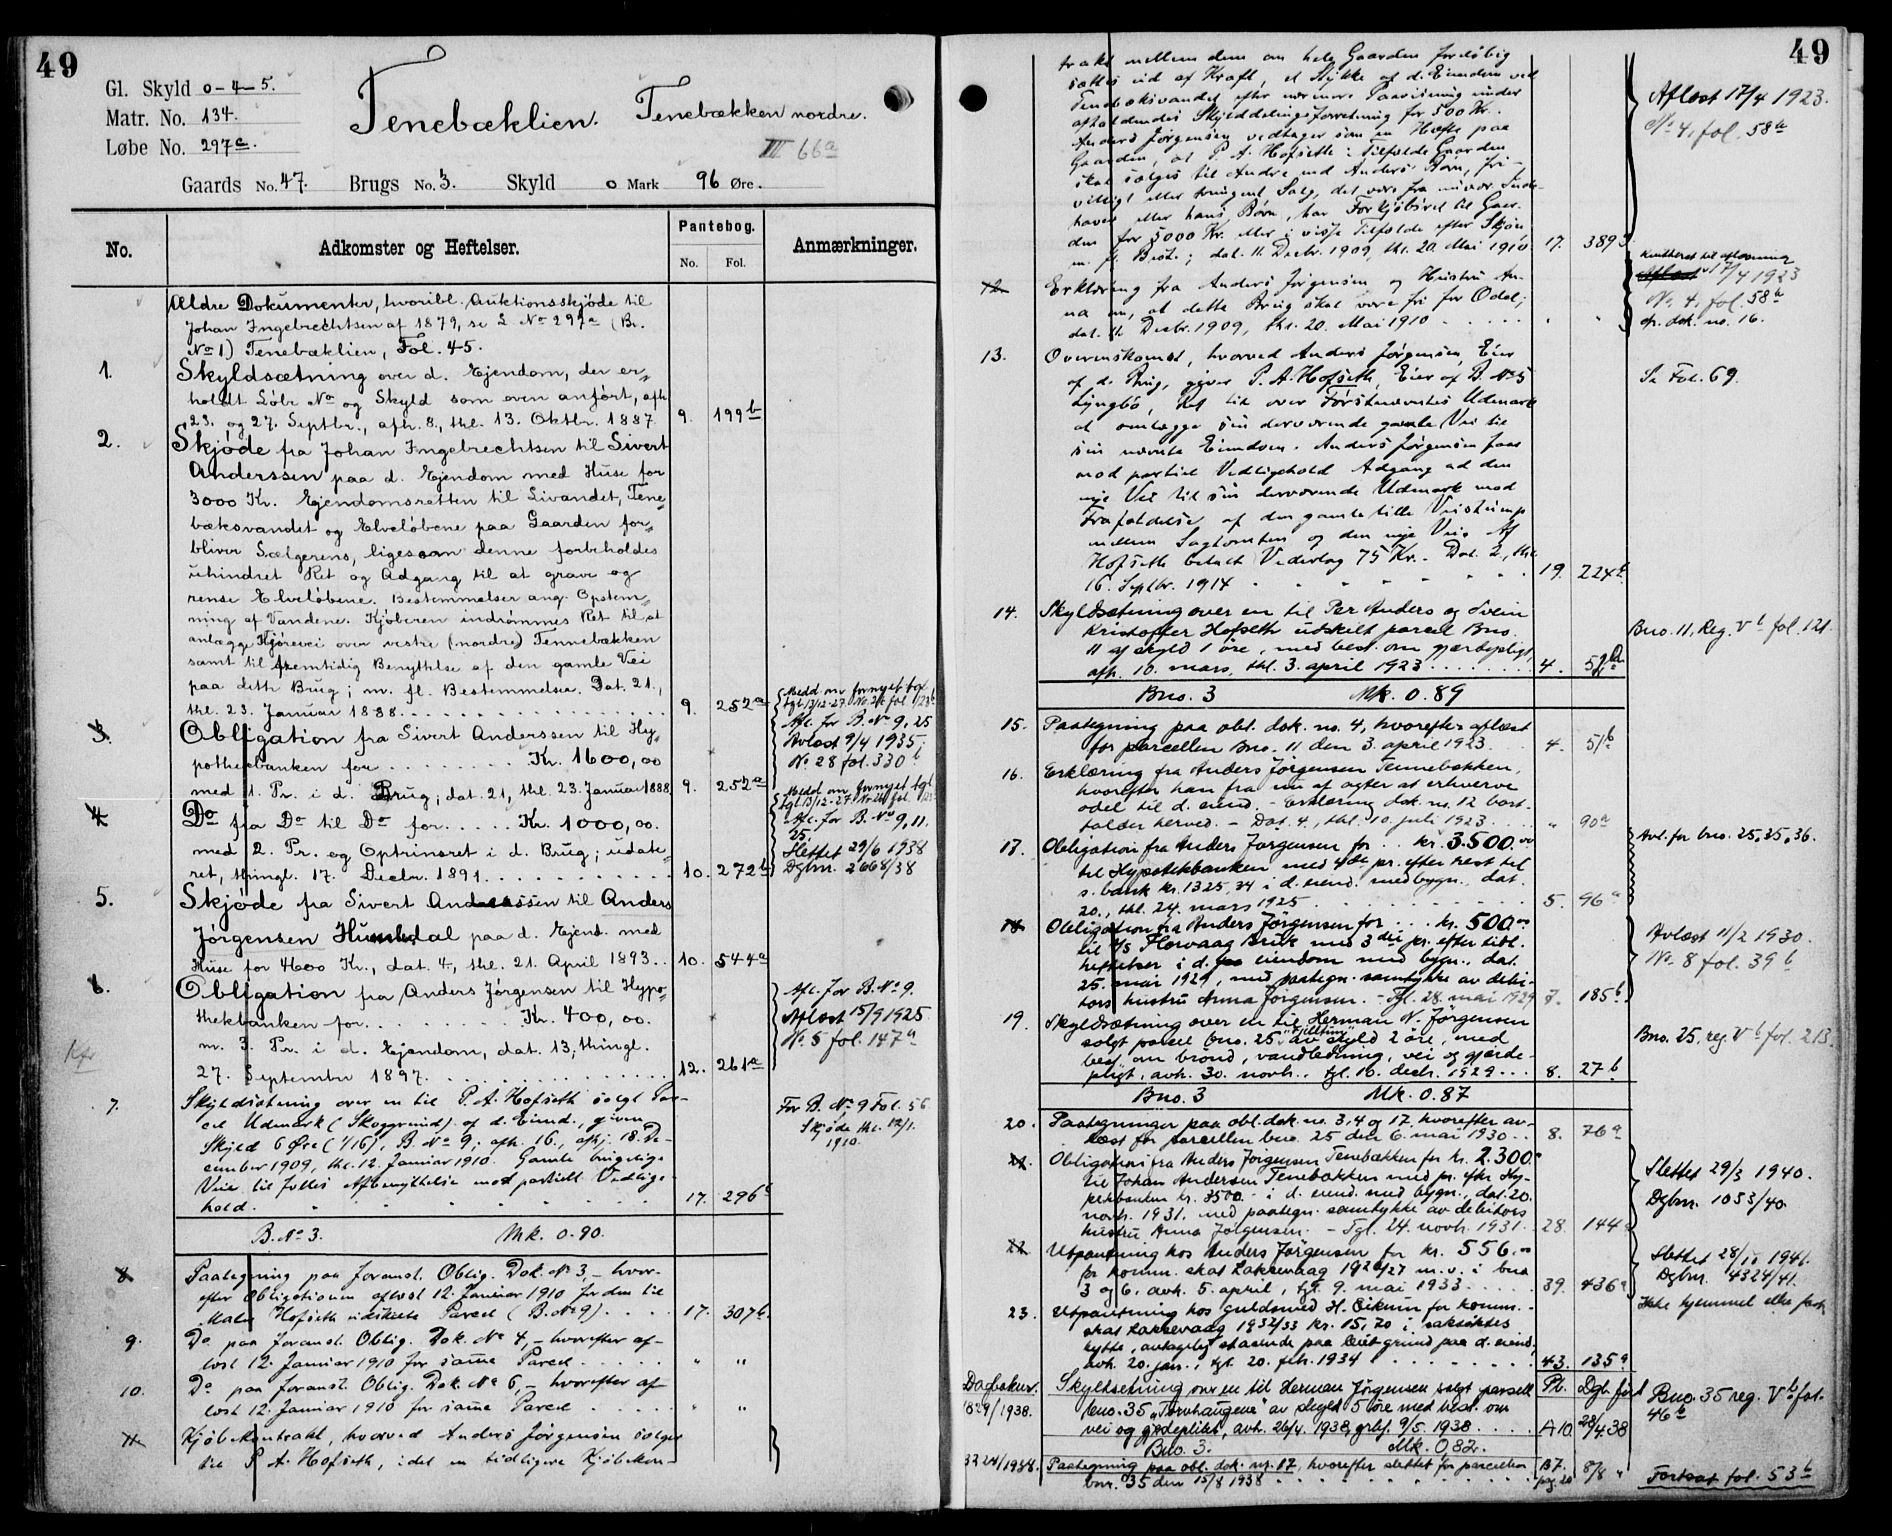 49
Gl. Skyld 0-4-5.
Matr. No. 134.
Løbe No. 297a.
Tenebæklien. Tenebækken nordre.
III 66a
Gaards No. 47. Brugs No. 3. Skyld 0 Mark 96 Øre.
No. Adkomster og Heftelser. Pantebog. No. Fol. Anmærkninger.
Ældre Dokumenter, hvoribl. Auktionsskjøde til
Johan Ingebrechtsen af 1879, se L No 297a (Br.
No 1) Tenebæklien, Fol. 45.
1. Skyldsætning over d. Ejendom, der er-
holdt Løbe No og Skyld som oven anført, afh.
23. og 27. Septbr., afh. 8., thl. 13. Oktbr. 1887 9. 199b
2. Skjøde fra Johan Ingebrechtsen til Sivert
Anderssen paa d. Ejendom med Huse for
3000 Kr. Ejendomsretten til Livandet, Tene-
bæksvandet og Elveløbene paa Gaarden for-
bliver Sælgerens, ligesom denne forbeholdes
uhindret Ret og Adgang til at grave og
rense Elveløbene. Bestemmelser ang. Opstem-
ning af Vandene. Kjøberen indrømmes Ret til at
anlægge Kjørevei over vestre (nordre) Tennebækken
samt til fremtidig Benyttelse af den gamle Vei
paa dette Brug; m. fl. Bestemmelser. Dat. 21.,
thl. 23. Januar 1888. 9. 252a
3. Obligation fra Sivert Anderssen til Hy-
pothekbanken for Kr. 1600,00
med 1. Pr. i d. Brug; dat. 21, thl. 23. Januar 1888 9. 252a
Medd. om fornyet tgl.
Afl. for B. No 9, 25
Avlæst 9/4 1935
No 28 fol. 330
4. Do fra Do til Do for Kr. 1000,00.
med 2. Pr. og Optrinsret i d. Brug; udate-
ret, thingl. 17. Decbr. 1891. 10. 272b
Medd. om fornyet tgl.
Afl. for B. No 9, 11.
25.
Slettet 29/6 1938
Dgbnr. 2668/38
5. Skjøde fra Sivert Anderssen til Anders
Jørgensen Humledal paa d. Ejend. med
Huse for 4600 Kr., dat. 4, thl. 21. April 1893. 10. 544a
6. Obligation fra Anders Jørgensen til Hypo-
thekbanken for Kr. 400,00.
m. 3. Pr. i d. Ejendom, dat. 13, thingl.
27. September 1897. 12. 261a
Afl. for B. No 9.
Aflæst 15/9 1925
No 5 fol. 147a
7. Skyldsætning over en til P. A. Hofseth solgt Par-
cel Udmark (Skoggrund) af d. Eiend., given
Skyld 6 Øre (1/16), B. No 9; afh. 16., afhj. 18. De-
cember 1909, thl. 12. Januar 1910. Gamle brugelige
Veie til fælles Afbenyttelse mod partielt Vedlige-
hold. 17. 296b
For B. No 9 Fol. 56
Skjøde thl. 12/1.
1910.
B. No 3. Mk. 0.90.
8. Paategning paa foranst. Oblig. Dok. No 3, - hvor-
efter Obligationen aflæst 12. Januar 1910 for den til
Maler Hofseth udskilte Parcel (B. No 9) 17. 307b.
9. Do paa foranst. Oblig. Dok. No 4, - hvorefter af-
læst 12. Januar 1910 for samme Parcel " "
10. Do paa foranst. Oblig. Dok. No 6, - hvorefter af-
læst 12. Januar 1910 for samme Parcel " "
11. Kjøbekontrakt, hvorved Anders Jørgensen sælger
til P. A. Hofseth, idet en tidligere Kjøbekon-
49
trakt mellem dem om hele Gaarden foreløbig
sættes ud af Kraft, et Stykke af d. Eiendom ved
Tenebæksvandet efter nærmere Paavisning under
afholdendes Skylddelingsforretning for 500 Kr.
Anders Jørgensen vedtager som en Hefte paa
Gaarden, at P. A. Hofseth i Tilfælde Gaarden
skal sælges til Andre end Anders' Børn, fri-
villigt eller tvungent Salg, det være fra nuvær. Inde-
haver eller hans Børn, har Forkjøbsret til Gaar-
den for 5000 Kr. eller i visse Tilfælde efter Skjøn,
m. fl. Best.; dat. 11. Decbr. 1909, thl. 20. Mai 1910. 17. 389b
Aflæst 17/4 1923.
No 4, fol. 58a
12. Erklæring fra Anders Jørgensen og Hustru An-
na om, at dette Brug skal være fri for Odel;
dat. 11. Decbr. 1909, thl. 20. Mai 1910 " "
Kvitteret til aflæsning
17/4 1923
No. 4. fol 58a
dp. dok. no. 16.
13. Overenskomst, hvorved Anders Jørgensen, Eier
af d. Brug, giver P. A. Hofseth, Eier af B. No 5
Lyngbø, Ret til over Førstnævntes Udmark
at omlægge sin derværende gamle Vei til
sin nævnte Eiendom. Anders Jørgensen faar
mod partiel Vedligehold Adgang ad den
nye Vei til sin derværende Udmark mod
Frafaldelse af den gamle lille Veistump
mellem Sagtomten og den nye Vei. Af
Hofseth betalt Vederlag 75 Kr. Dat. 2., thl.
16. Septbr. 1914 19. 224b.
Se Fol. 69.
14. Skyldsætning over en til Per Anders og Svein
Kristoffer Hofseth utskilt parcel Bno.
11 af skyld 1 øre, med best. om gjærdepligt,
afh. 10. mars, thl. 3. april 1923 4. 52a
Bno. 11, Reg. Vb fol. 121.
Bno. 3 Mk. 0.89
15. Paategning paa obl. dok. no. 4, hvorefter aflæst
for parcellen Bno. 11 den 3. april 1923. 4. 51b
16. Erklæring fra Anders Jørgensen Tennebækken,
hvorefter han fra nu af agter at erhverve
odel til d. eiend. - Erklæring dok. no. 12 bort-
falder herved. - Dat. 4., thl. 10. juli 1923 " 90a
17. Obligation fra Anders Jørgensen for kr. 3.500.00
til Hypotekbanken med 4de pr. efter rest til
s. bank kr. 1325,34 i d. eiend. med bygn. dat.
20., thl. 24. mars 1925 5. 96a
Avl. for bno. 25, 35, 36.
18. Obligation fra Anders Jørgensen for kr. 500.00
til A/S Florvaag Bruk med 3die pr. efter tidl.
heftelser i d. eiendom med bygn., dat.
25. mai 1929, med paategn. samtykke av debi-
tors hustru Anna Jørgensen. - Tgl. 28. mai 1929 7. 185b
Avlæst 11/2 1930.
No. 8 fol. 39b
19. Skyldsætning over en til Herman N. Jørgensen
solgt parcel bno. 25 av skyld 2 øre, med
best. om brønd, vandledning, vei og gjærde-
pligt, avh. 30. novbr., tgl. 16. decbr. 1929. 8. 27b
Bno. 25, reg. Vb fol. 213.
Bno. 3 Mk. 0.87
20. Paategninger paa obl. dok. no. 3, 4 og 17, hvorefter av-
læst for parcellen bno. 25 den 6. mai 1930. 8. 76a
21. Obligation fra Anders Jørgensen Tenebækken for kr. 2.300.-
til Johan Andersen Tenebækken med pr. efter Hy-
potekbanken kr. 3500.- i d. eiend. med bygn., dat. 20.
novbr. 1931, med paategn. samtykke av debitors
hustru Anna Jørgensen. - Tgl. 24. novbr. 1931. 28. 144a
Slettet 29/3 1940.
Dgbnr. 1053/40.
22. Utpantning hos Anders Jørgensen for kr. 556.00
for komm. skat Laksevaag 1926/27 m. v. i bno.
3 og 6, avh. 5. april, tgl. 9. mai 1933 39. 436a
Slettet 28/10 1941.
Dgbnr. 4324/41.
23. Utpantning hos guldsmed H. Eikum for komm.-
skat Laksevaag 1932/33 kr. 15,70 i saksøktes
hytte, antagelig staaende paa leiet grund paa d. eiend.,
avh. 20. jan., tgl. 20. febr. 1934 43. 135a
Ikke hjemmel
Dagboknr. 829/1938. Skyldsetning over en til Herman Jørgensen solgt parsell Pb. Dgb. ført
bno. 35 "Torvhaugene" av skyld 5 øre med best. om
vei og gjerdeplikt, avh. 26/4 1938, grbf. 9/5 1938 A 10 28/4.38
Bno. 35 reg. Vb fol.
46a
Bno. 3. Mk. 0,82.
3224/1938. Paategning paa obl. dok. nr. 17, hvorefter slettet for parcellen B7. 8/8 "
bnr. 35 den 15/8 1938 pag. 20
Fortsat fol. 53b